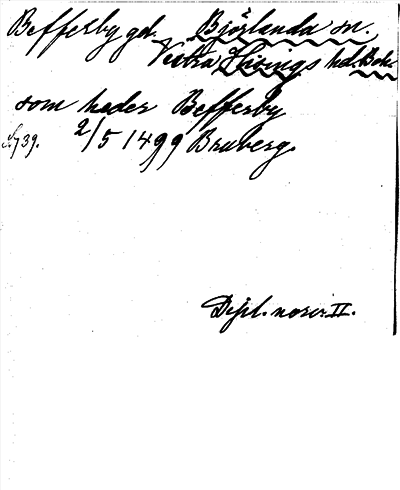 Befferby gd. Björlanda sn.
Västra Hisings hd. Boh.
som heder Befferby
S. 739. 2/5 1499 Bruberg.
Dipl. norv. II.